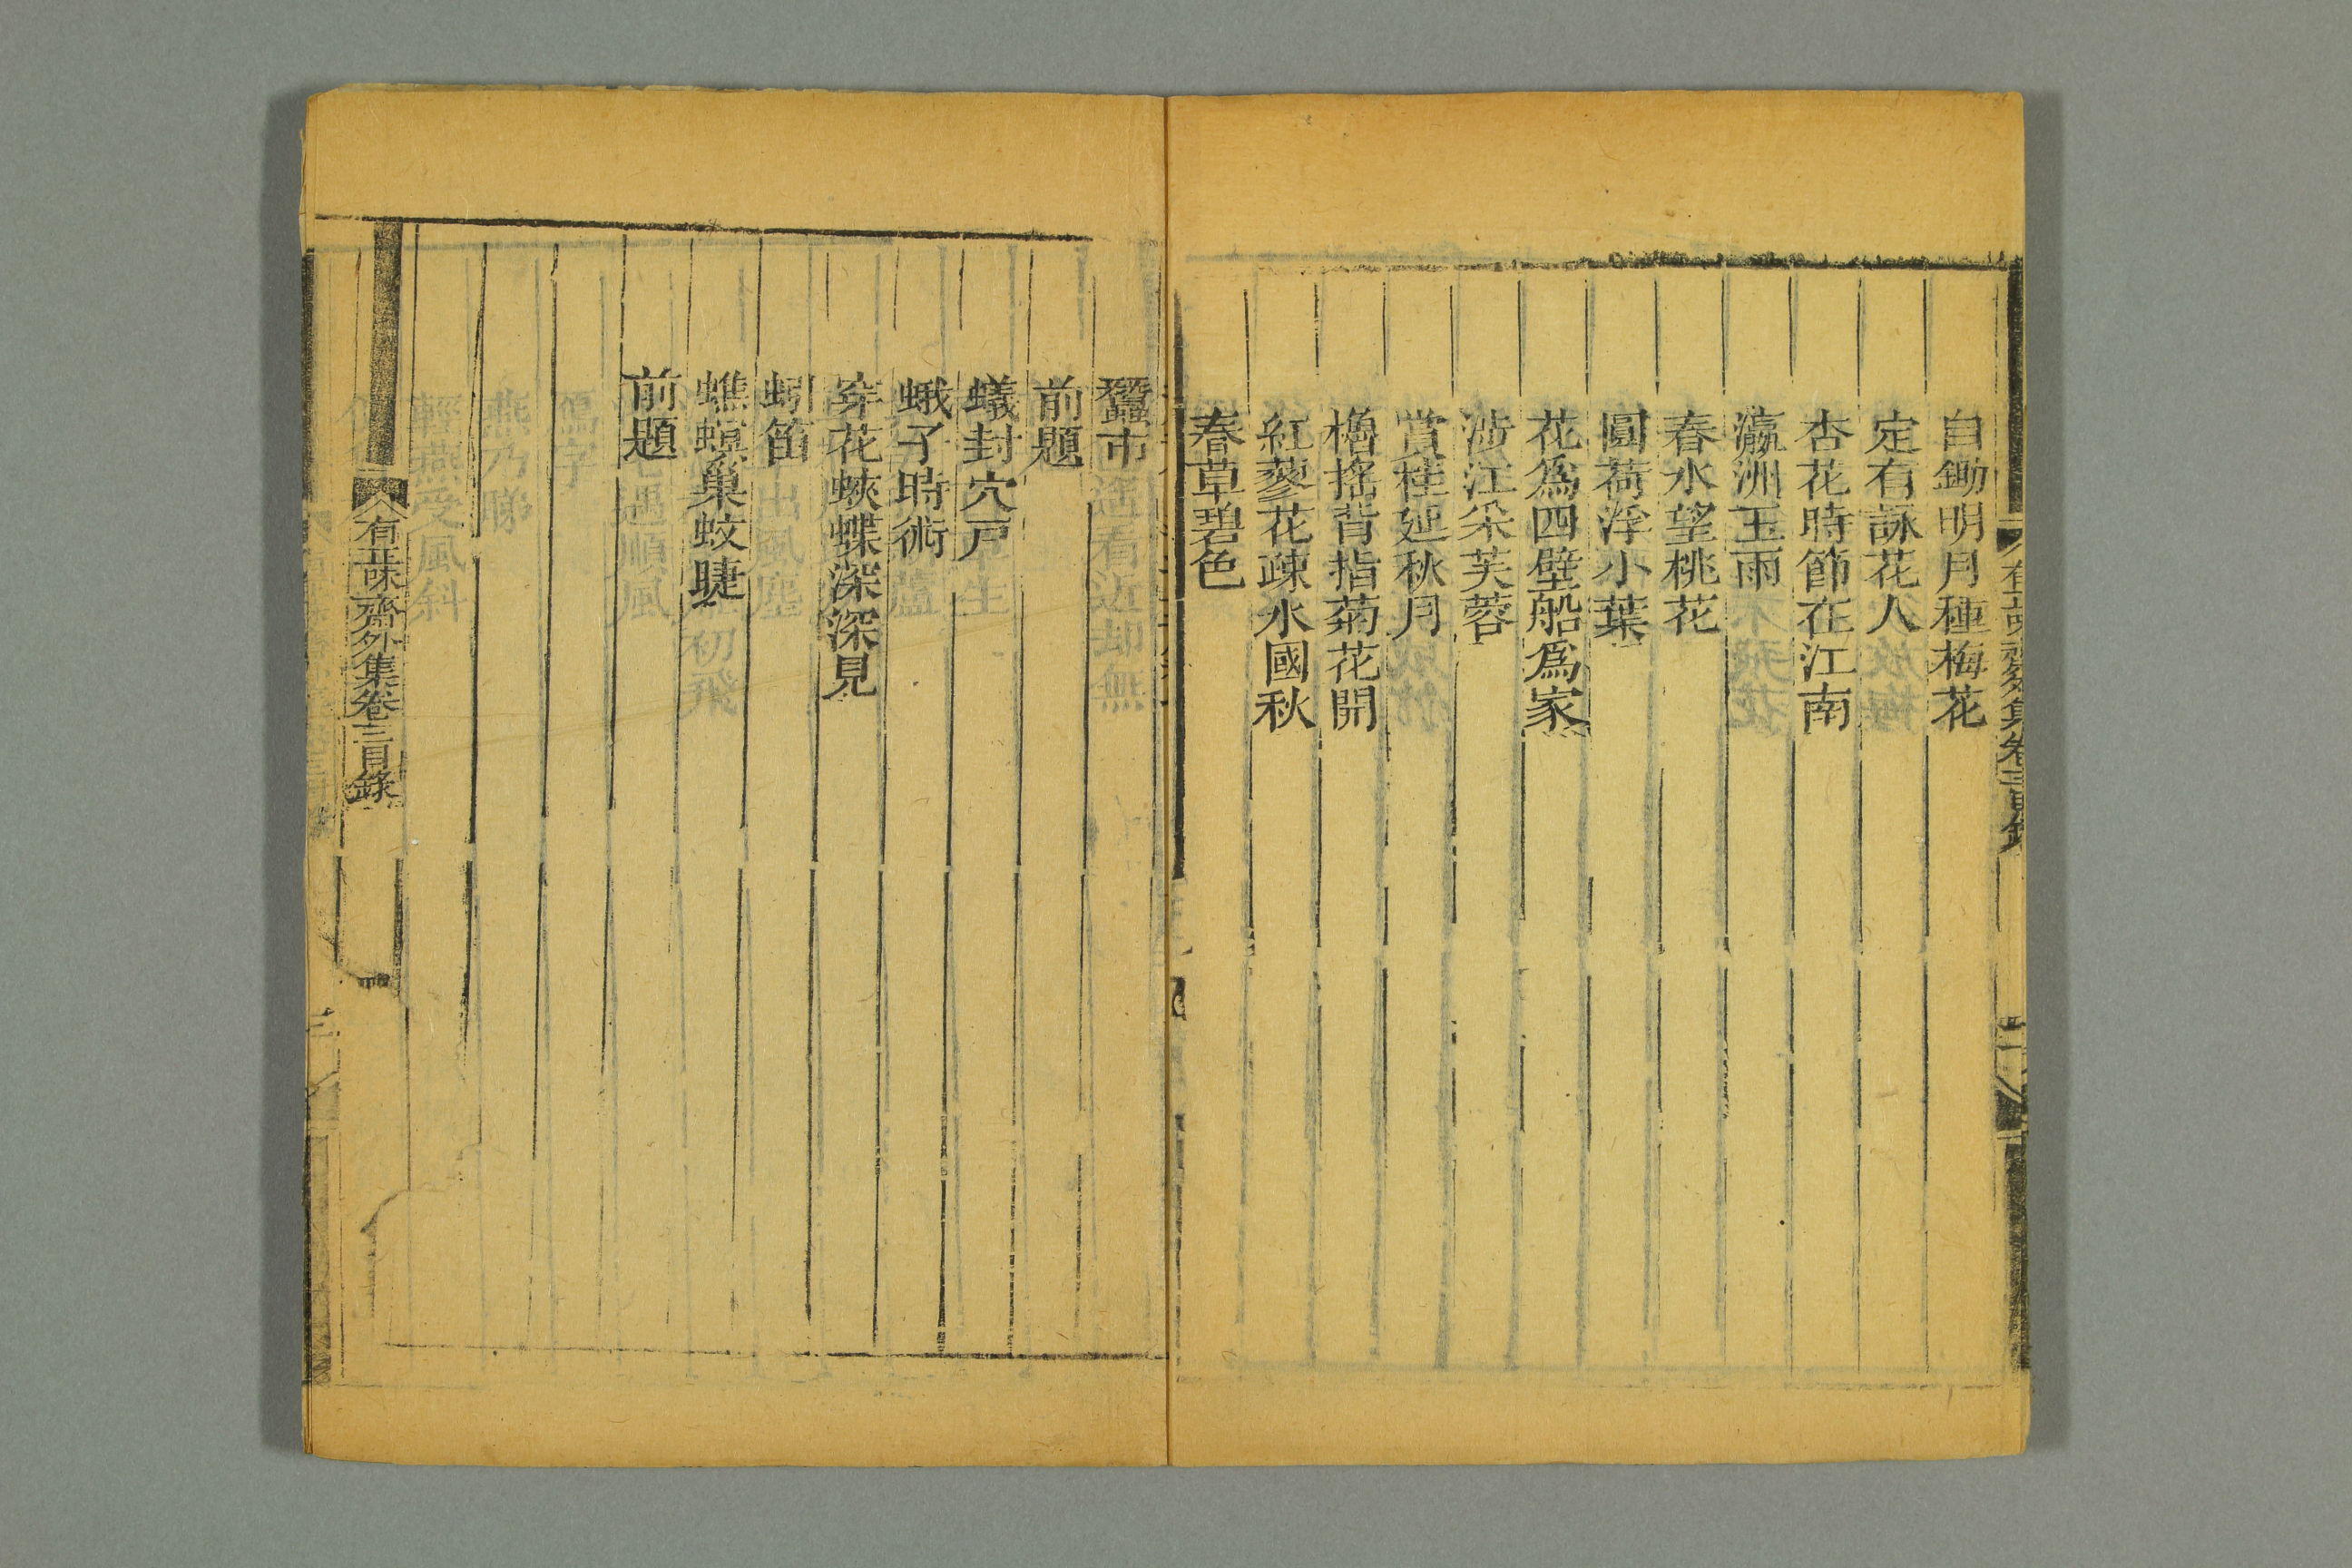 自鋤明月種梅花
定有詠花人
杏花時節在江南
瀛洲玉雨
春水望桃花
圓荷浮小葉
花爲四壁船爲家
涉江采芙蓉
賞桂延秋月
櫓搖背指菊花開
紅蓼花疎水國秋
春草碧色
蠶市
前題
蟻封穴戶
蛾子時術
穿花蛺蝶深深見
蚓笛
蟭螟巢蚊睫
前題
有正味齋外集卷三目錄